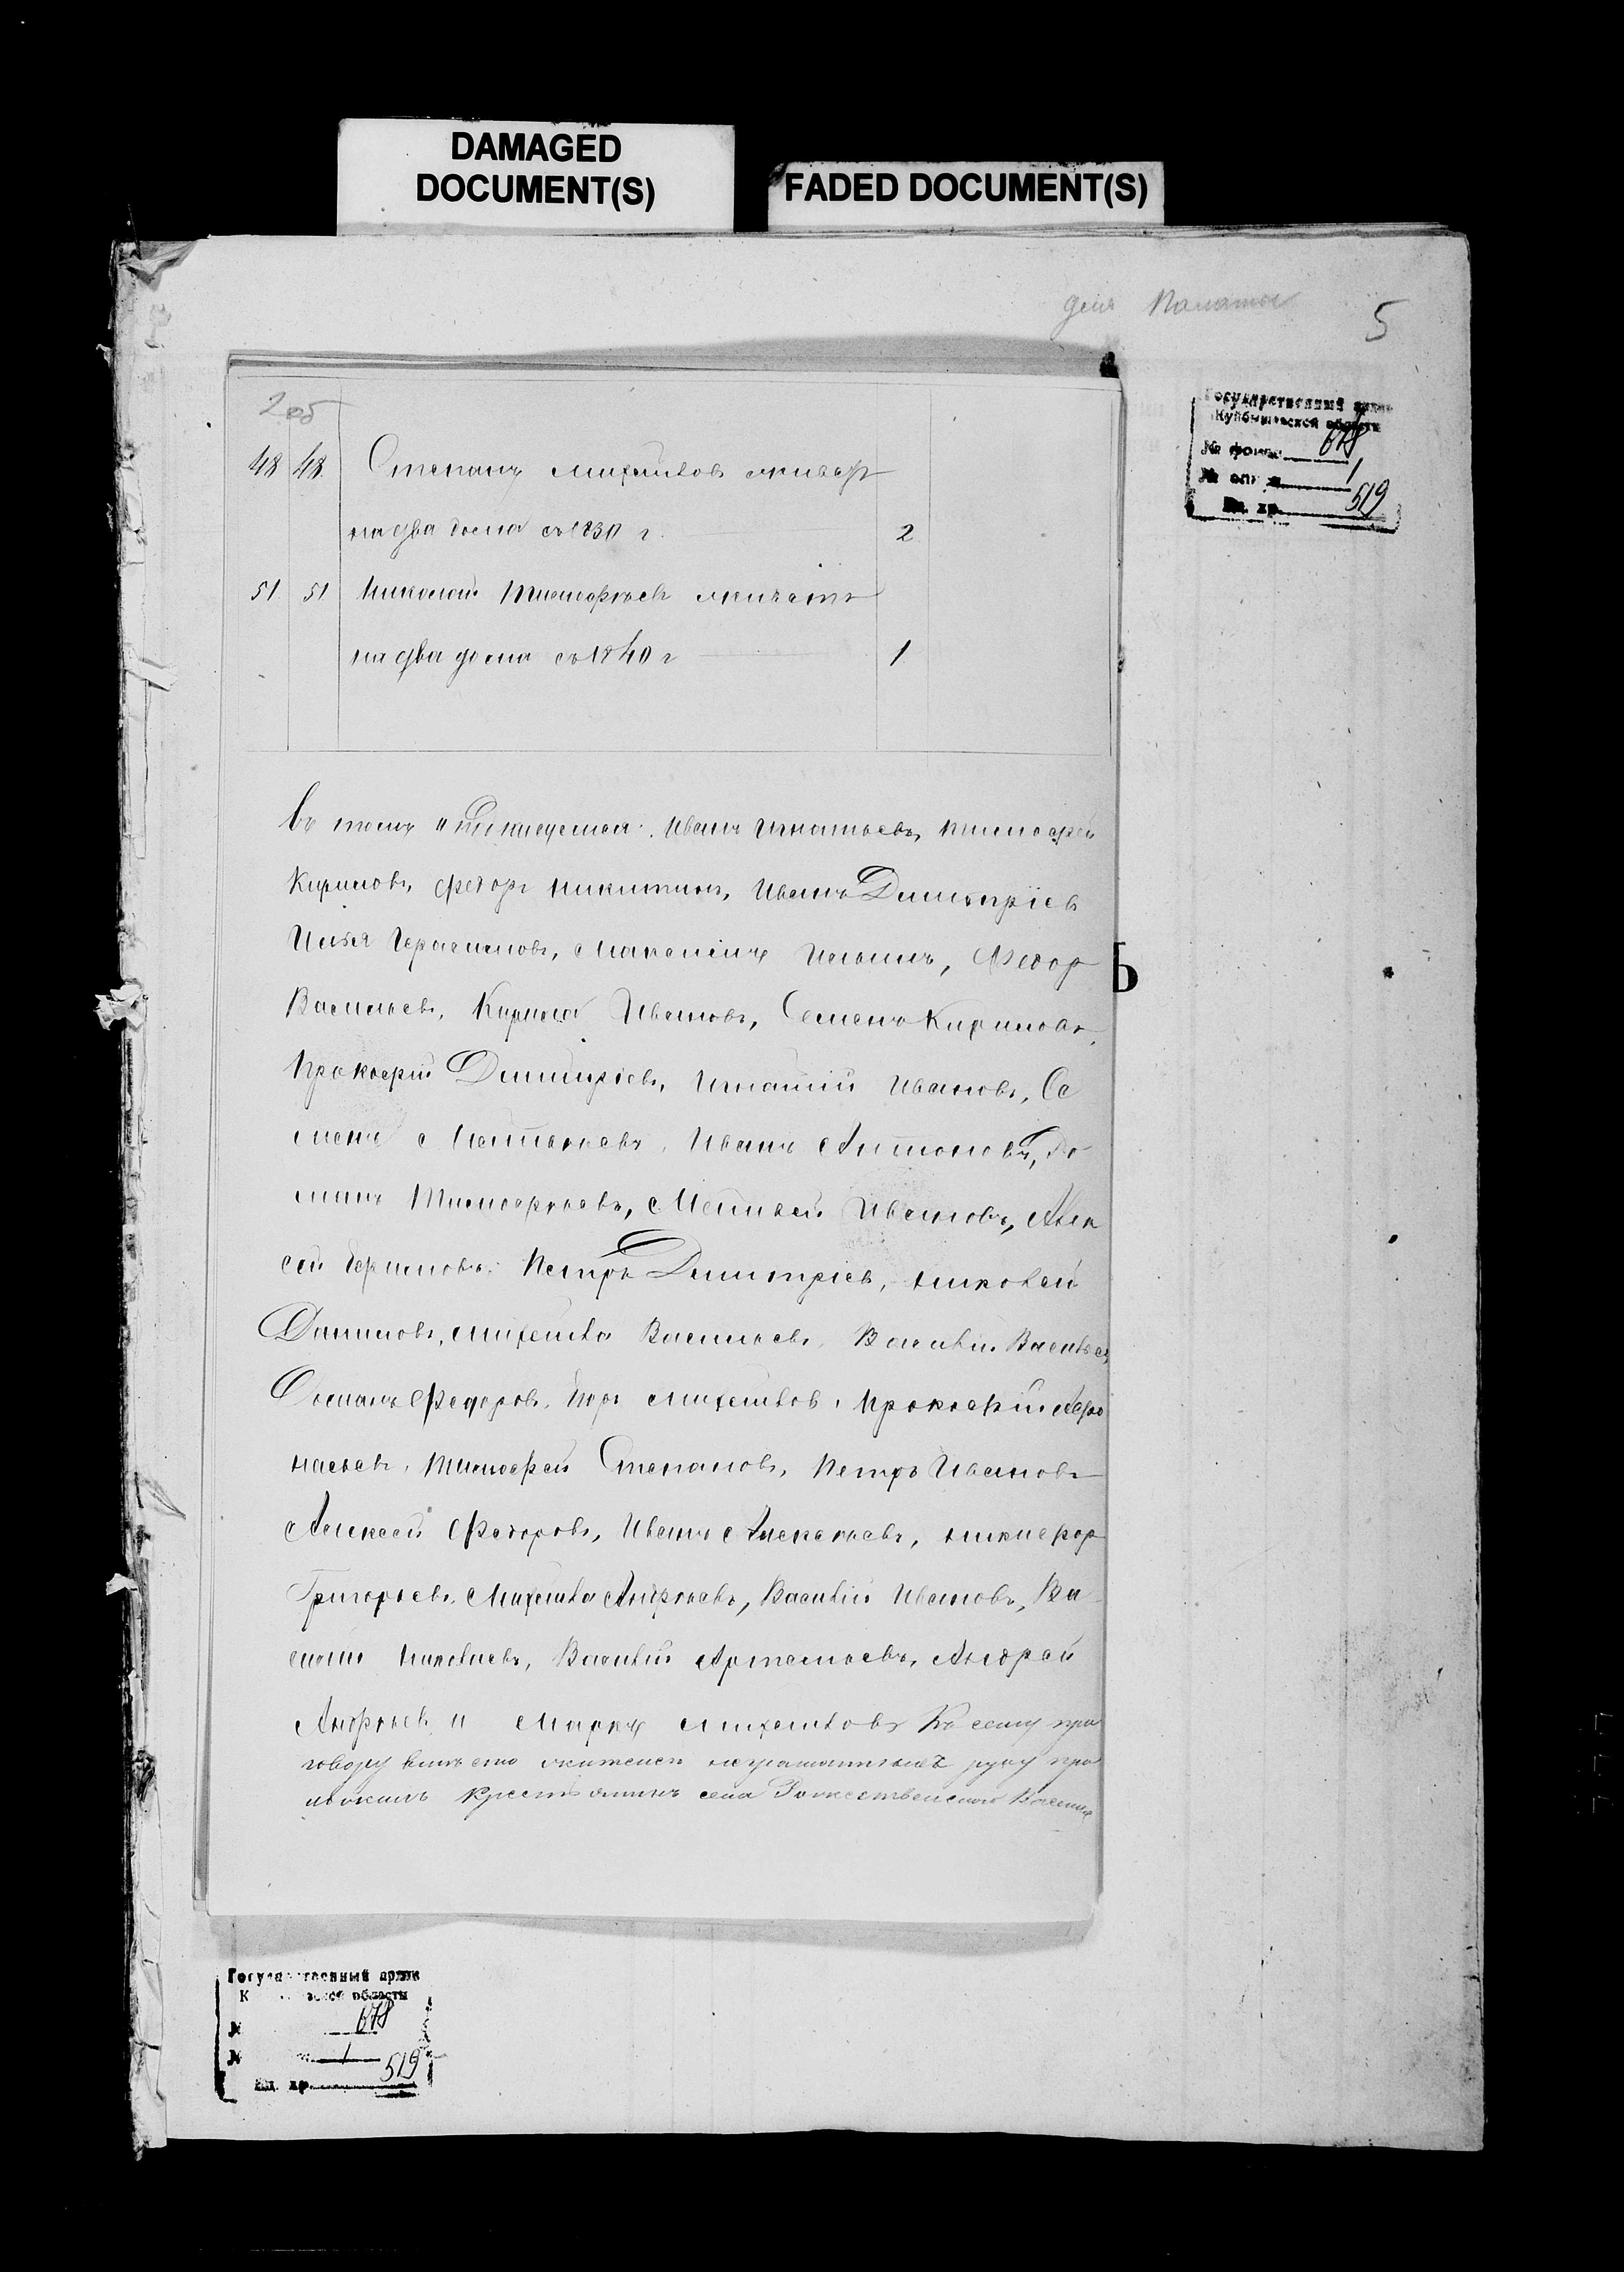 DAMAGED
DOCUMENT(S)
FADED DOCUMENT(S)
для Палаты
5
Государственный архив
Куйбышевской области
№ фонда 678
№ описи 1
Ед. хр. 519
2 об
48 48 Степанъ Михайловъ живетъ
на два дома съ 1830 г. 2
51 51 Николай Тимофѣевъ живетъ
на два дома съ 1840 г 1
Въ томъ и подпишемся: Иванъ Игнатьевъ, Тимофей
Кириловъ, Федоръ Никитинъ, Иванъ Димитріевъ
Илья Герасимовъ, Максимъ Ильинъ, Федор
Васильевъ, Кирила Ивановъ, Семенъ Кириловъ,
Прокофій Димитріевъ, Игнатій Ивановъ, Се
менъ Матвѣевъ, Иванъ Антоновъ, Ро
манъ Тимофѣевъ, Матвей Ивановъ, Алек
сѣй Петръ Димитріев, Николай
Даниловъ, Михайла Васильевъ, Василій Васильев
Федоровъ, Егоръ Михайловъ, Прокофій Афо
насьевъ, Тимофей Степановъ, Петръ Ивановъ
Алексей Федоровъ, Иванъ Алексѣевъ, Никифор
Григорьевъ, Михайла Андрѣевъ, Василій Ивановъ, Ва
силій Николаевъ, Василій Артемьевъ, Андрей
Андрѣевъ и Маркъ Михайловъ Къ сему при
говору вмѣсто жителей неграматныхъ руку при
ложилъ крестьянинъ села Рожественского Василій
Ь
Государственный архив
К области
№ 678
№ 1
Ед. хр. 519